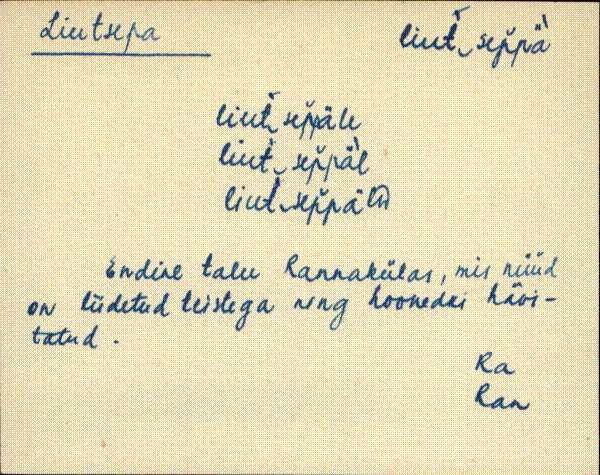 Liutsepa
liut̀‿sep̆pä̀
liut̀‿sep̆päle
liut̀‿sep̆pä̀l
liut̀‿sep̆päl͕t
Endine talu Rannakülas, mis nüüd
on liidetud teistega ning hoonedki hävi-
tatud.
Ra
Ran